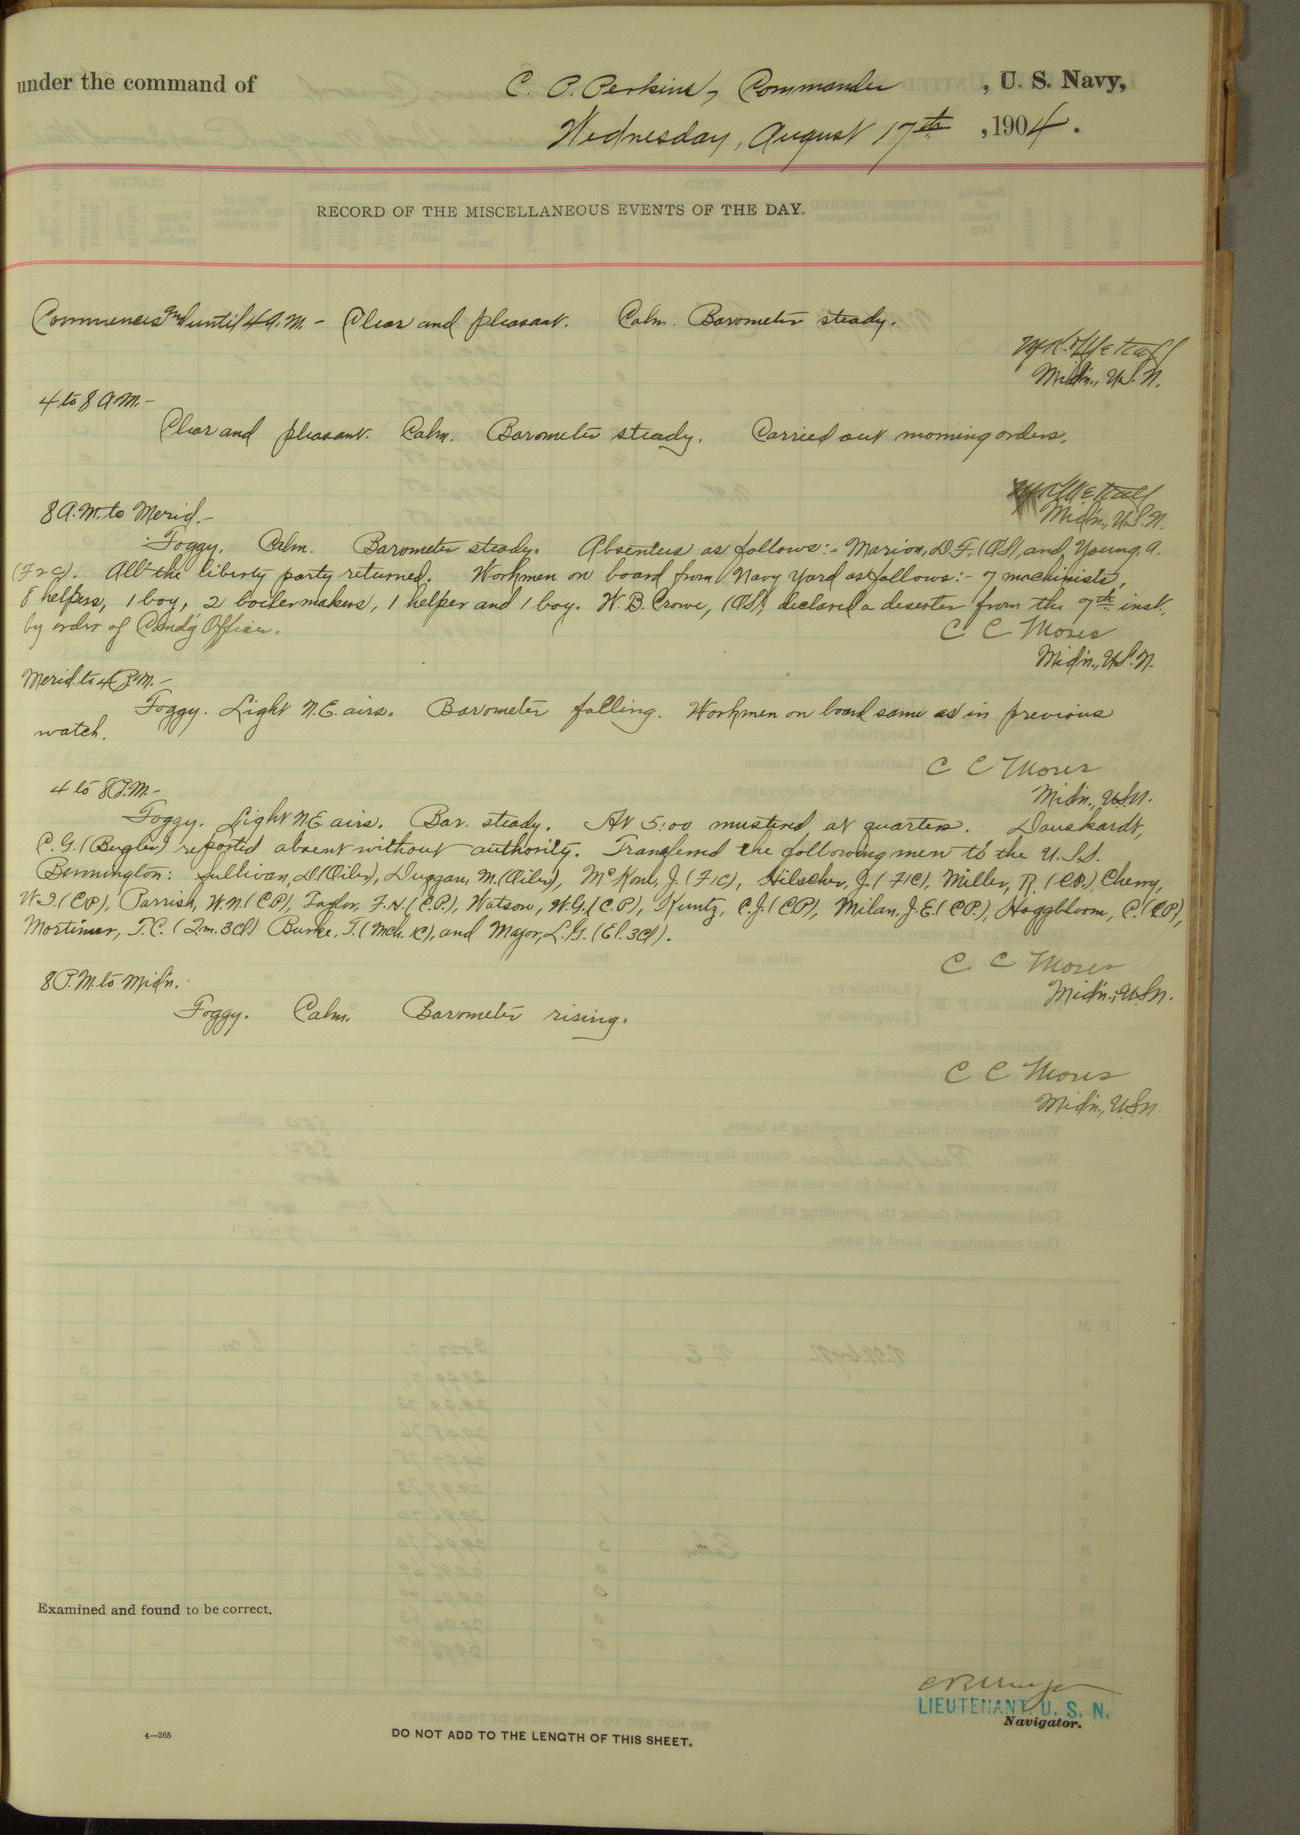 under the command of C. P. Perkins, Commander, U. S. Navy,
Wednesday, August 17th, 1904.
RECORD OF THE MISCELLANEOUS EVENTS OF THE DAY.
Commences and until 4 A.M. - Clear and pleasant. Calm. Barometer steady.
Midn., U.S.N.
4 to 8 A.M. -
Clear and pleasant. Calm. Barometer steady. Carried out morning orders.
Midn., U.S.N.
8 A.M. to Merid. -
Foggy. Calm. Barometer steady. Absentees as follows:- Marion, D.F. (OS), and Young, A.
(F2C). All the liberty party returned. Workmen on board from Navy Yard as follows:- 7 machinists,
8 helpers, 1 boy, 2 boilermakers, 1 helper and 1 boy. W. B. Crowe, (OS), declared a deserter from the 7th inst.
by order of Comdg Officer.
C C Moses
Midn., U.S.N.
Merid. to 4 P.M. -
Foggy. Light N.E. airs. Barometer falling. Workmen on board same as in previous
watch.
C C Moses
Midn., U.S.N.
4 to 8 P.M. -
Foggy. Light N.E. airs. Bar. steady. At 5:00 mustered at quarters. Dauskardt,
C. G. (Bugler) reported absent without authority. Transferred the following men to the U.S.S.
Bennington: Sullivan, D. (Oiler), Duggan, M. (Oiler), J. (F1C), Hilscher, J. (F1C), Miller, R. (C.P.), Cherry,
W.I. (CP), Parrish, W.N. (CP), Taylor, F.H. (C.P.), Watson, W.G. (C.P.), Kuntz, C.J. (CP), Milan, J.E. (C.P.), Haggbloom, C. (CP),
Mortimer, T.C. (Qm. 3Cl) Burke, T. (Mch. 1C), and Major, L.G. (El. 3Cl).
C C Moses
Midn., U.S.N.
8 P.M. to Midn.
Foggy. Calm. Barometer rising.
C C Moses
Midn., U.S.N.
Examined and found to be correct.
LIEUTENANT, U. S. N.
Navigator.
4—265
DO NOT ADD TO THE LENGTH OF THIS SHEET.